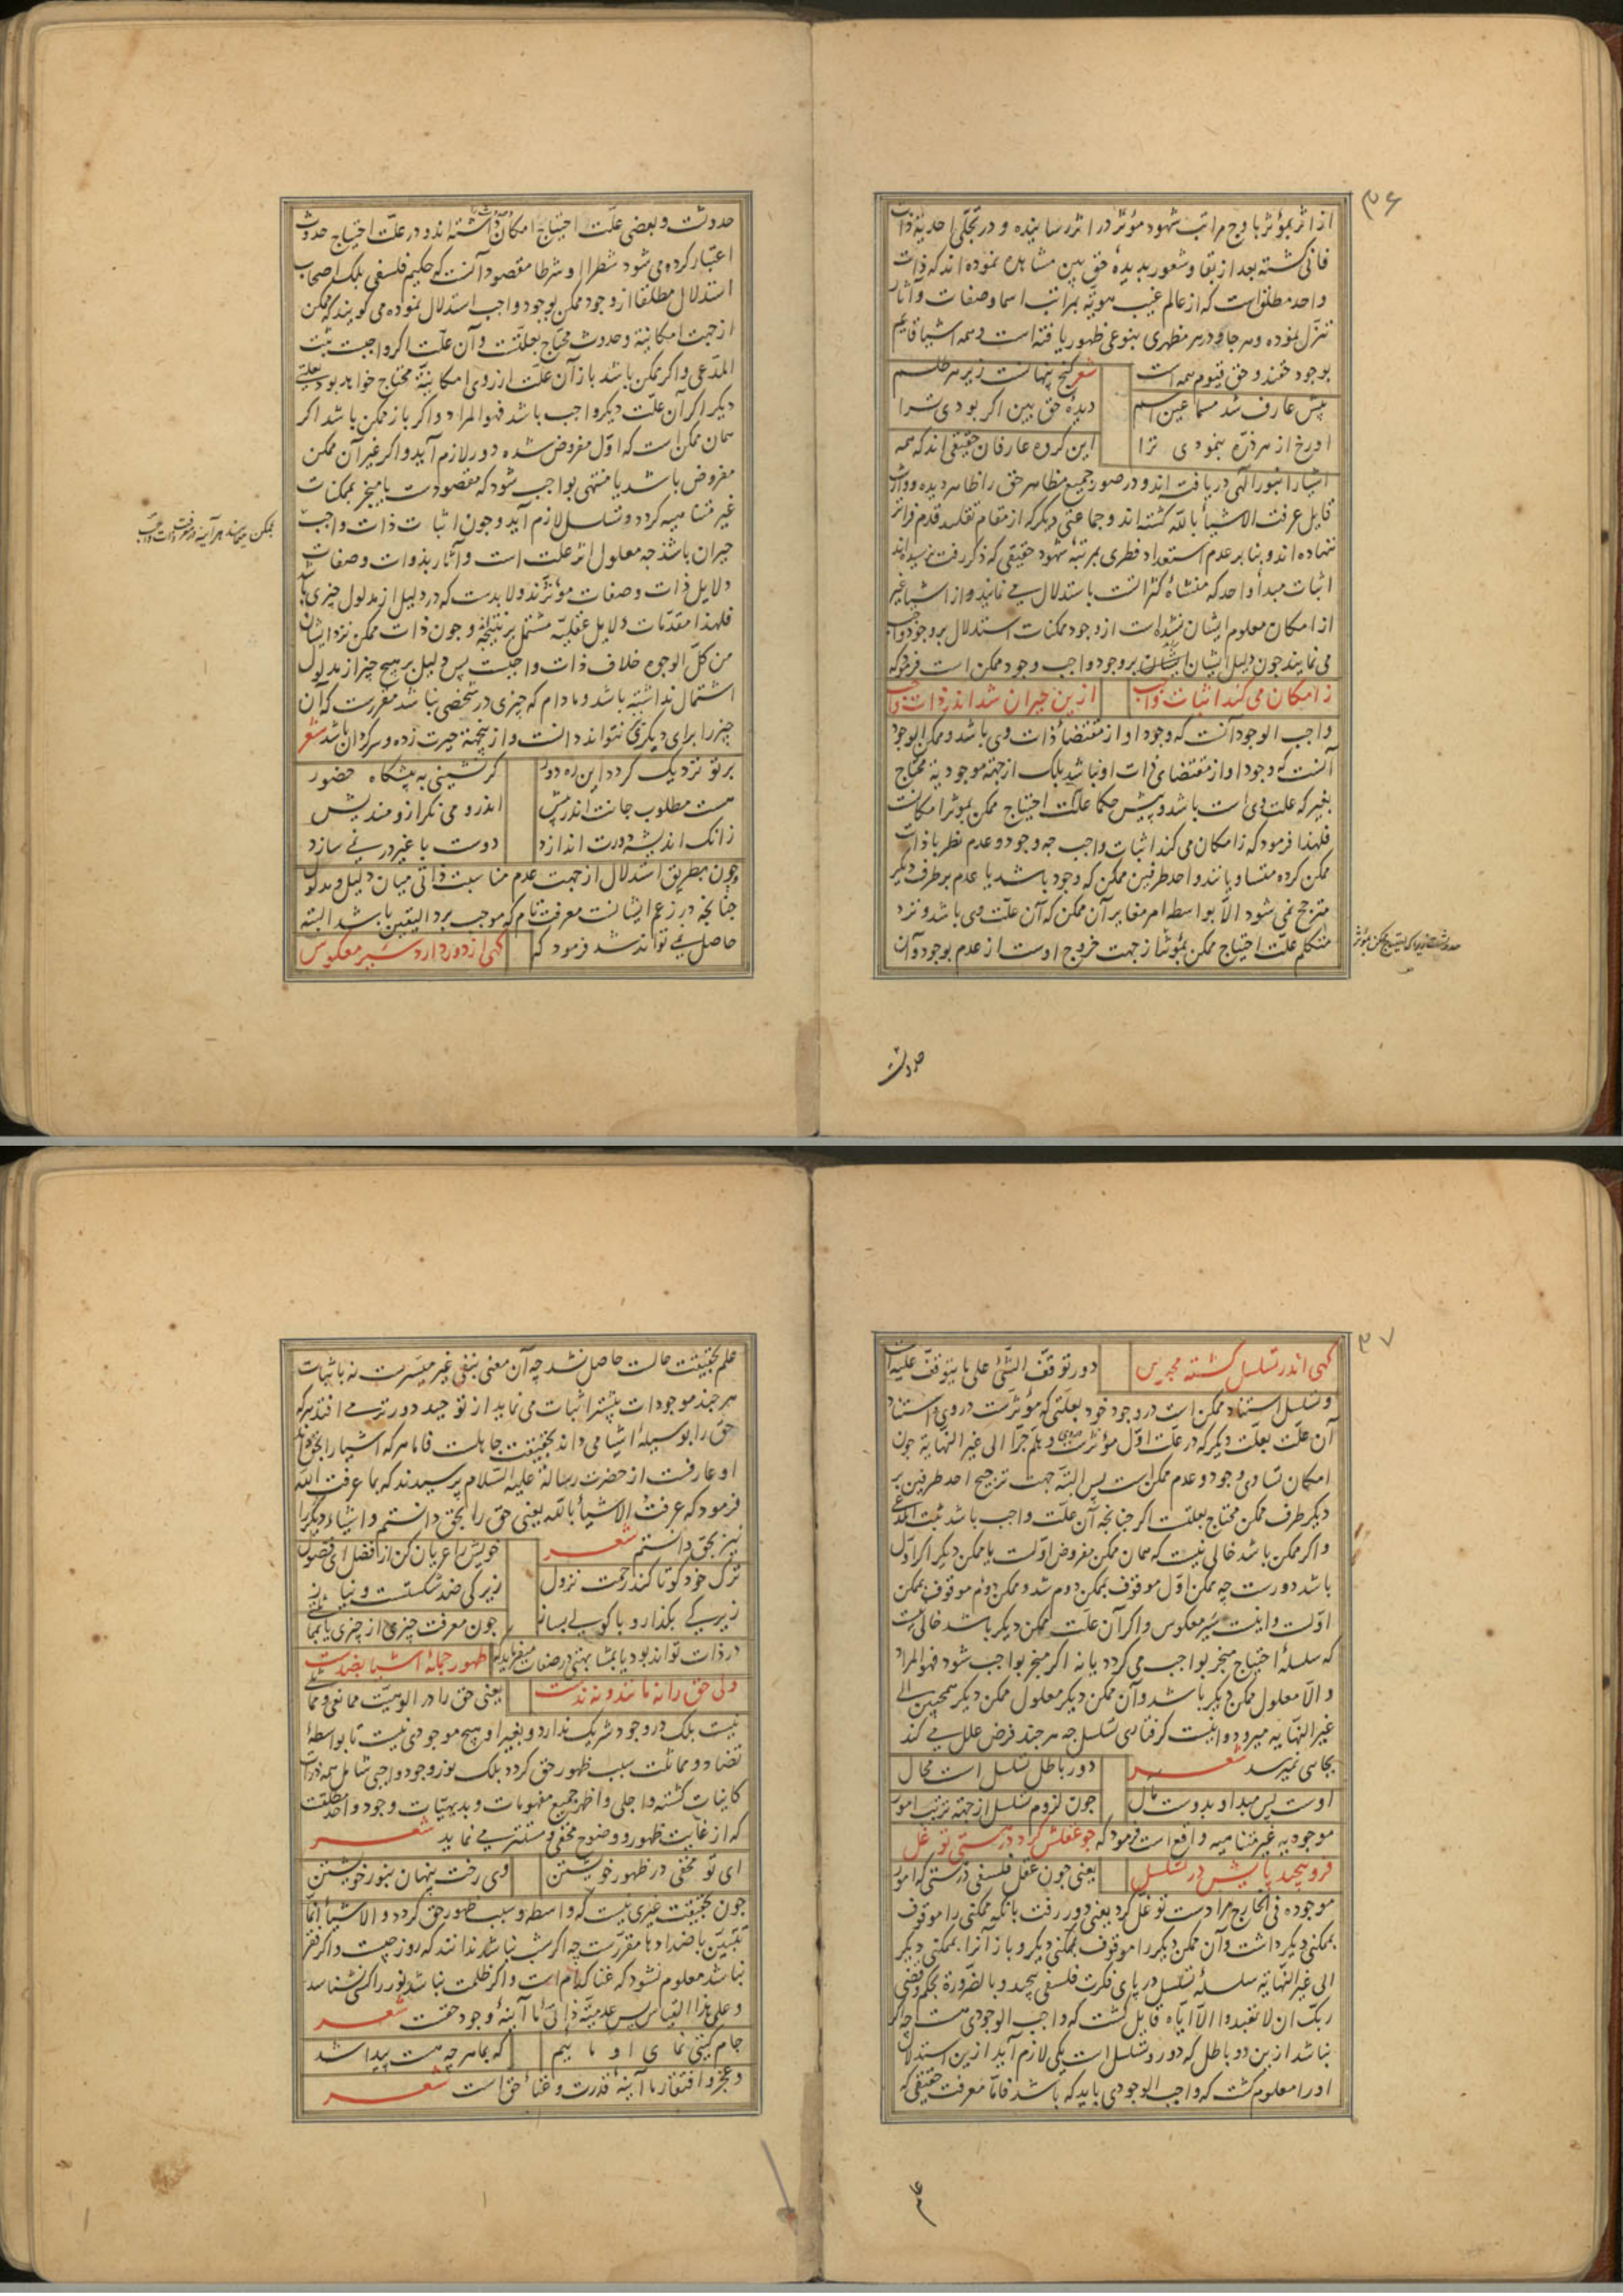 ۳۶
از اثر بمؤثر باوج مراتب شهود مؤثر در اثر رسانیده و در تجلی احدیة ذات
فانی کشته بعد از بقا و شعور بدیده حق بین مشاهده نموده اند که ذات
واحد مطلق است که از عالم غیب هویّه بمراتب اسما و صفات و آثار
تنزّل نموده و هر جا و در هر مظهری بنوعی ظهور یافته است و همه اشیا قایم
بوجود حقند و حق قیوم همه است شعر کنج پنهانست زیر هر طلسم
پیش عارف شد مسما عین اسم دیدهٔ حق بین اکر بودی ترا
او رخ از هر ذرّه بنمودی ترا این کروه عارفان حقیقی اند که همه
اشیا را بنور الهی دریافته اند و در صور جمیع مظاهر حق را ظاهر دیده
قایل عرفت الاشیأ باللّه کشته اند و جماعتی دیکر که از مقام تقلید قدم فراتر
نهاده اند و بنا بر عدم استعداد فطری بمرتبهٔ شهود حقیقی که ذکر رفت نرسیده اند
اثبات مبدأ واحد که منشاء کثراتست باستدلال می نمایند و از اشیا غیر
از امکان معلوم ایشان نشده است از وجود ممکنات استدلال بر وجود واجب
می نمایند چون دلیل ایشان بر وجود واجب وجود ممکن است فرمود که
ز امکان می کند اثبات واجب ازین حیران شد اندر ذات واجب
واجب الوجود آنست که وجود او از مقتضاء ذات وی باشد و ممکن الوجود
آنست که وجود او از مقتضای ذات او نباشد بلک از جهة موجودیة محتاج
بغیر که علت وی است باشد و پیش حکما علّت احتیاج ممکن بموثر امکانست
فلهذا فرمود که ز امکان می کند اثبات واجب چه وجود و عدم نظر با ذات
ممکن کرده متساویانند و احد طرفین ممکن که وجود باشد یا عدم بر طرف دیکر
مترجح نمی شود الّا بواسطه امر مغایر آن ممکن که آن علّت وی باشد و نزد
متکلم علّت احتیاج ممکن بمؤثر از جهت خروج اوست از عدم بوجود و آن
حدوثست
حدوثست و بعضی علّت احتیاج امکان داشته اند و در علّت احتیاج حدوث
اعتبار کرده می شود شطرا او شرطا مقصود آنست که حکیم فلسفی بلک اصحاب
استدلال مطلقا از وجود ممکن بوجود واجب استدلال نموده می کویند که ممکن
از جهت امکانیّة و حدوث محتاج بعلّتست و آن علّت اکر واجبست ثبت
المدّعی و اکر ممکن باشد باز آن علّت از روی امکانیّة محتاج خواهد بود بعلتی
دیکر اکر آن علّت دیکر واجب باشد فهو المراد و اکر باز ممکن باشد اکر
همان ممکن است که اوّل مفروض شده دور لازم آید و اکر غیر آن ممکن
مفروض باشد یا منتهی بواجب شود که مقصودست یا منجر بممکنات
غیر متناهیه کردد و تسلسل لازم آید و چون اثبات ذات واجب
حیران باشد چه معلول اثر علت است و آثار بذوات و صفات
دلایل ذات و صفات موثرند و لابدست که در دلیل از مدلول چیزی باشد
فلهذا مقدّمات دلایل عقلیّه مشتمل بر نتیجه و چون ذات ممکن نزد ایشان
من کلّ الوجوه خلاف ذات واجبست پس دلیل بر هیچ چیز از مدلول
اشتمال نداشته باشد و مادام که چیزی در شخصی نباشد مقررست که آن
چیز را برای دیکری نتواند دانست و از ینجهة حیرت زده و سرکردان باشد شعر
بر تو نزدیک کردد این ره دور کر نشینی به پیشکاه حضور
هست مطلوب جانت اندر پیش اندرو می نکر از و مندیش
زانک اندیشه دورت اندازد دوست با غیر در نمی سازد
و چون بطریق استدلال از جهت عدم مناسبت ذاتی میان دلیل و مدلول
چنانچه در زعم ایشانست معرفت تام که موجب برد الیقین باشد البته
حاصل نمی تواند شد فرمود که کهی از دور دارد سیر معکوس
۳۷
کهی اندر تسلسل کشته محبوس دور توقّف الشّئ علی ما یتوقّف علیه است
و تسلسل استناد ممکن است در وجود خود بعلّتی که مؤثرست در وی و استناد
آن علّت بعلّت دیکر که در علّت اوّل مؤثرست و هلم جرّا الی غیر النهایة چون
امکان تساوی وجود و عدم ممکن است پس البتّه جهت ترجیح احد طرفین بر
دیکر طرف ممکن محتاج بعلتست اکر چنانچه آن علت واجب باشد ثبت المدّعی
و اکر ممکن باشد خالی نیست که همان ممکن مفروض اوّلست یا ممکن دیکر اکر اوّل
باشد دورست چه ممکن اوّل موقوف بممکن دوم شد و ممکن دوم موقوف بممکن
اوّلست و اینست سیر معکوس و اکر آن علت ممکن دیکر باشد خالی نیست
که سلسلهٔ احتیاج منجر بواجب می کردد یا نه اکر منجر بواجب شود فهو المراد
و الّا معلول ممکن دیکر باشد و آن ممکن دیکر معلول ممکن دیکر همچنین الی
غیر النهایه میرود و اینست کرفتاری تسلسل چه هر چند فرض علل می کند
بجایی نمیرسد شعر دور باطل تسلسل است محال
اوست پس مبدا و بدوست مآل چون لزوم تسلسل از جهة ترتیب امور
موجودیه غیر متناهیه واقع است فرمود که چو عقلش کرد در هستی توغل
فرو پیچید پایش در تسلسل یعنی چون عقل فلسفی در هستی که امور
موجوده فی الخارج مرادست توغّل کرد یعنی دور رفت بآنکه ممکنی را موقوف
بممکنی دیکر داشت و آن ممکن دیکر را موقوف بممکنی دیکر و باز آنرا بممکنی دیکر
الی غیر النّهایة سلسلهٔ تسلسل در پای فکرت فلسفی پیچید و بالضرورة بحکم و قضی
ربّک ان لا تعبدوا الّا ایّاه قایل کشت که واجب الوجودی هست چه اکر
نباشد از ین دو باطل که دور و تسلسل است یکی لازم آید ازین استدلال
او را معلوم کشت که واجب الوجودی باید که باشد فامّا معرفت حقیقی که
علم
علم بحقیقت حالست حاصل نشد چه آن معنی بنفی غیر میسّرست نه باثبات
هر چند موجودات بیشتر اثبات می نماید از توحید دورتر می افتد هر که
حق را بوسیلهٔ اشیا می داند بحقیقت جاهلست فاما هر که اشیا را بحق داند
او عارفست از حضرت رسالة علیه السّلام پرسیدند که بما عرفت اللّه
فرمود که عرفت الاشیأ باللّه یعنی حق را بحق دانستم و اشیاء دیکر را
نیز بحق دانستم شعر خویش را عریان کن از فضل ای فضول
ترک خود کو تا کند رحمت نزول زیرکی ضد شکستست و نیاز
زیرکی بکذار و با کولی بساز چون معرفت چیزی از چیزی یا بمماثلتی
در ذات تواند بود یا بمشابهتی در صفات میفرماید که ظهور جملهٔ اشیا بضدست
ولی حق را نه مانند و نه ندست یعنی حق را در الوهیّت ممانعی و مماثلی
نیست بلک در وجود شریک ندارد و بغیر او هیچ موجودی نیست تا بواسطهٔ
تضاد و مماثلت سبب ظهور حق کردد بلک نور وجود واجبی شامل همه ذرّات
کاینات کشته و اجلی و اظهر جمیع مفهومات و بدیهیّات وجود واحد مطلقست
که از غایت ظهور و وضوح مخفی و مستتر می نماید شعر
ای تو مخفی در ظهور خویشتن وی رخت پنهان بنور خویشتن
چون بحقیقت غیری نیست که واسطه و سبب ظهور حق کردد و الاشیأ انّما
تتبیّن باضدادها مقررست چه اکر شب نباشد ندانند که روز چیست و اکر فقر
نباشد معلوم نشود که غنا کدام است و اکر ظلمت نباشد نور را کس نشناسد
و علی هذا القیاس پس عدمیّة ذاتی ما آینهٔ وجود حقست شعر
جام کیتی نمای او ماییم که بما هر چه هست پیدا شد
و عجز و افتقار ما آینهٔ قدرت و غناء حق است شعر